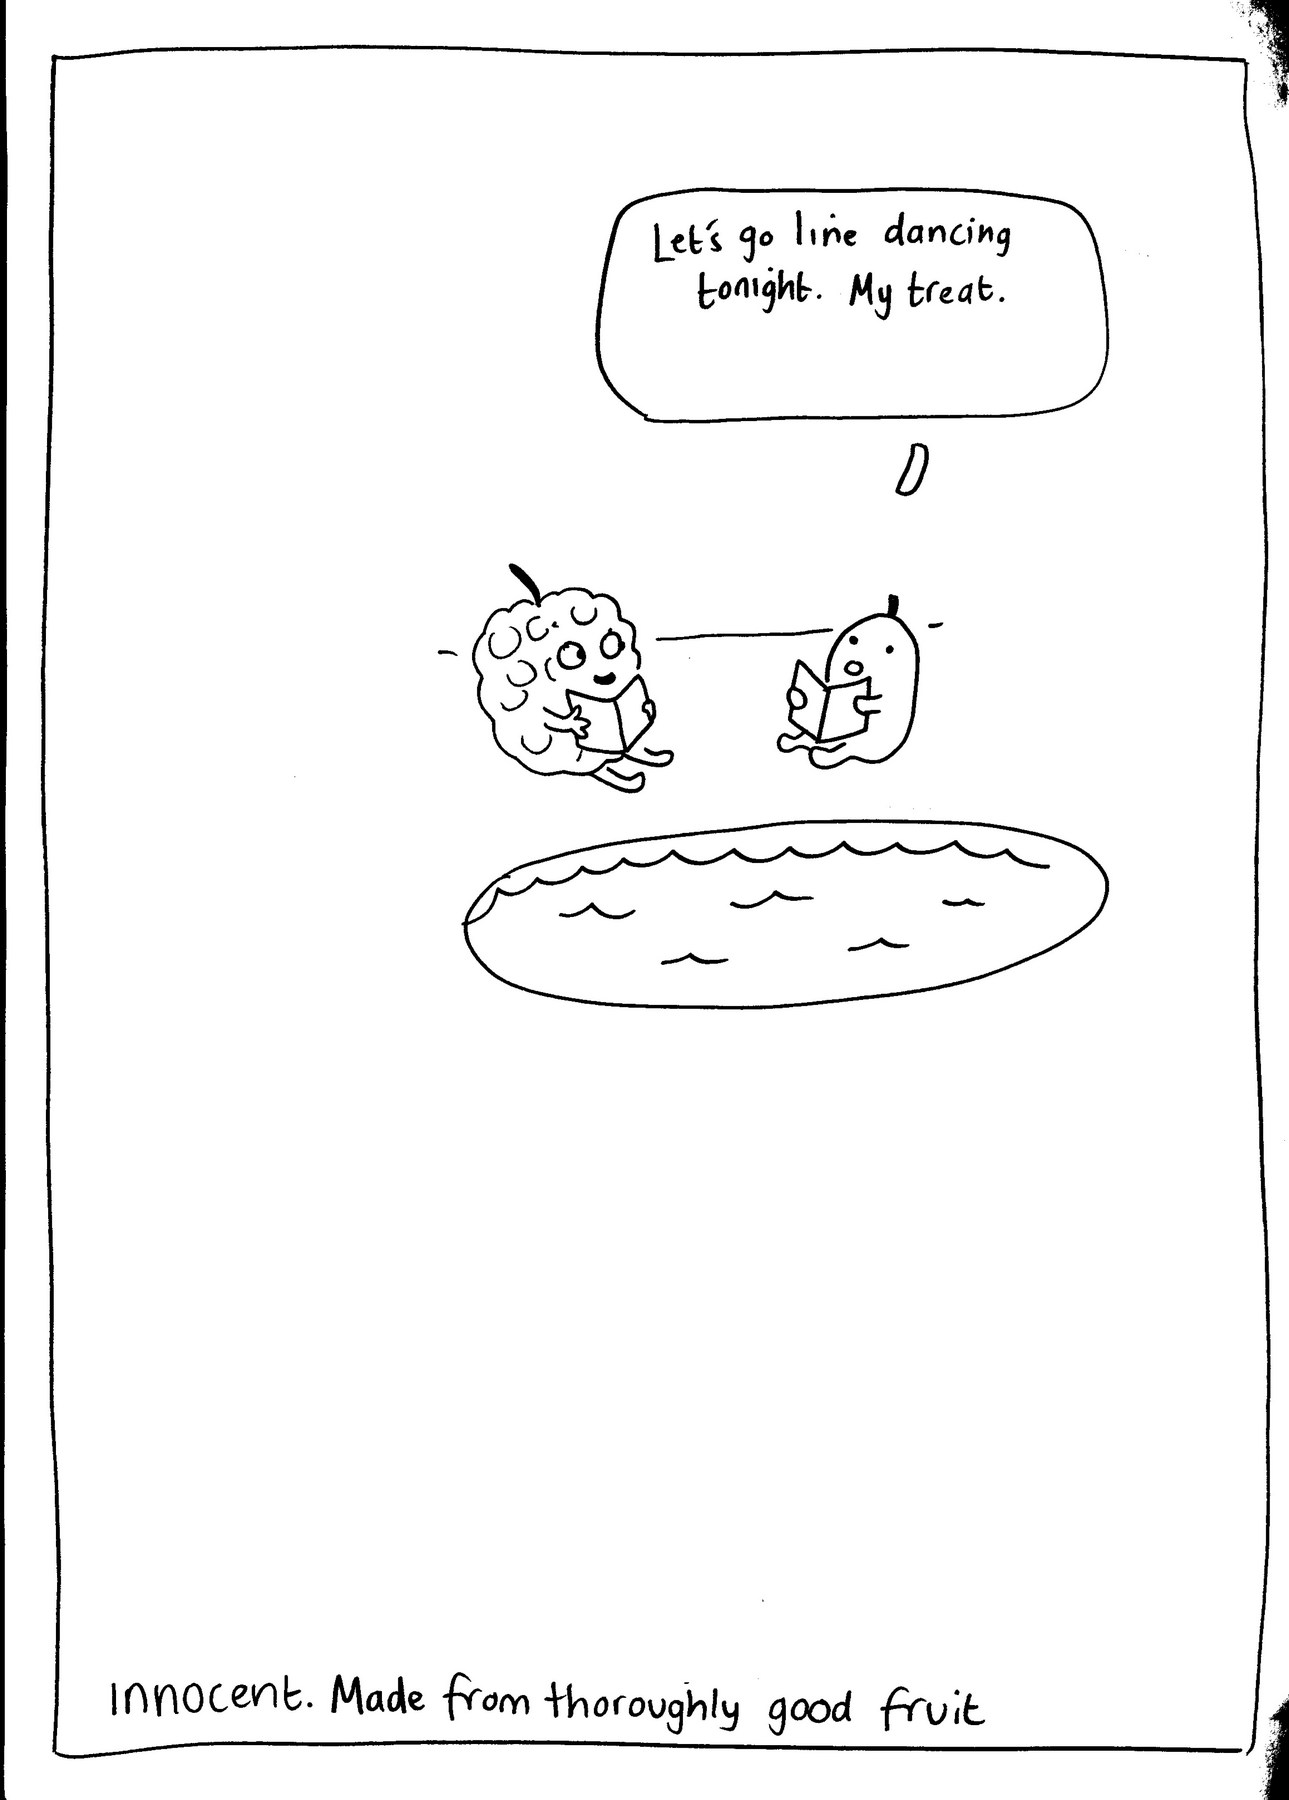 Let's go line dancing
tonight. My treat.
innocent. Made from thoroughly good fruit